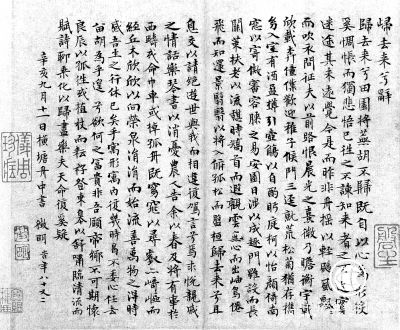 歸去來兮辭
歸去來兮田園將蕪胡不歸既自以心為形役
奚惆悵而獨悲悟已往之不諫知來者之可追實
迷途其未遠覺今是而昨非舟搖搖以輕颺風飄飄
而吹衣問征夫以前路恨晨光之熹微乃瞻衡宇載
欣載奔僮僕歡迎稚子候門三逕就荒松菊猶存攜
幼入室有酒盈樽引壺觴以自酌眄庭柯以怡顏倚南
窗以寄傲審容膝之易安園日涉以成趣門雖設而長
關策扶老以流憩時矯首而遐觀雲無心而出岫鳥倦
飛而知還景翳翳以將入撫孤松而盤桓歸去來兮請
息交以絕遊世與我而相遺復駕言兮焉求悅親戚
之情話樂琴書以消憂農人告余以春及將有事於
西疇或命巾車或棹孤舟既窈窕以尋壑亦崎嶇而
經丘木欣欣以向榮泉涓涓而始流善萬物之得時
感吾生之行休已矣乎寓形宇內復幾時曷不委心任去
留胡為乎遑遑兮欲何之富貴非吾願帝鄉不可期懷
良辰以孤往或植杖而耘耔登東皋以舒嘯臨清流而
賦詩聊乘化以歸盡樂夫天命復奚疑
辛亥九月十一日橫塘舟中書 徵明